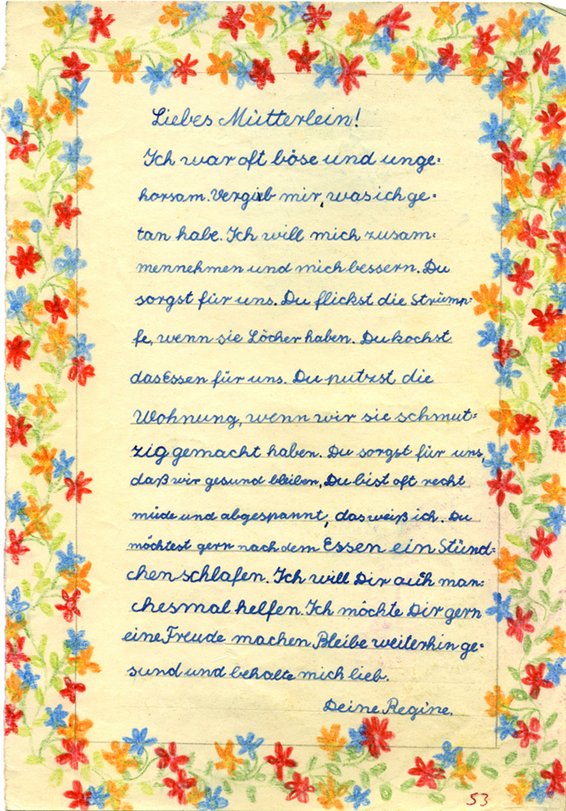 Liebes Mütterlein!
Ich war oft böse und unge-
horsam. Vergib mir, was ich ge-
tan habe. Ich will mich zusam-
mennehmen und mich bessern. Du
sorgst für uns. Du flickst die Strümp-
fe, wenn sie Löcher haben. Du kochst
das Essen für uns. Du putzst die
Wohnung, wenn wir sie schmut-
zig gemacht haben. Du sorgst für uns,
daß wir gesund bleiben, Du bist oft recht
müde und abgespannt, das weiß ich. Du
möchtest gern nach dem Essen ein Stünd-
chen schlafen. Ich will Dir auch man-
chesmal helfen. Ich möchte Dir gern
eine Freude machen. Bleibe weiterhin ge-
sund und behalte mich lieb.
Deine Regine.
53